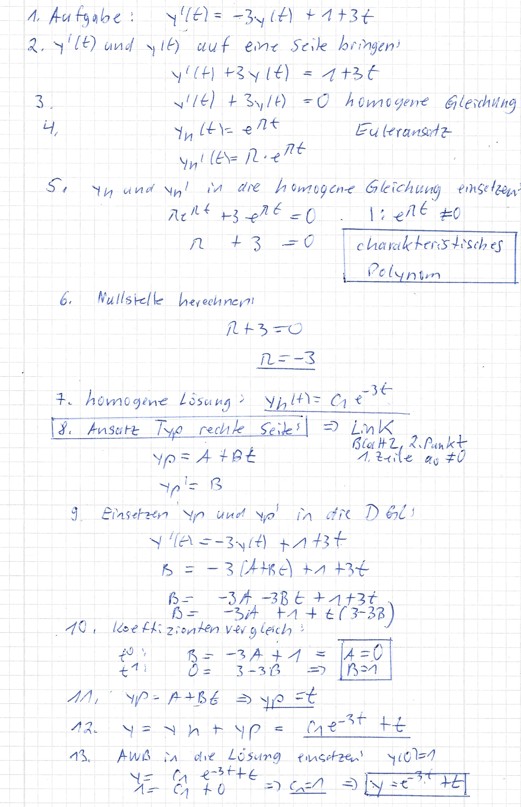 1. Aufgabe: y'(t) = -3y(t) + 1+3t
2. y'(t) und y(t) auf eine Seite bringen:
y'(t) +3y(t) = 1+3t
3. y'(t) + 3y(t) = 0 homogene Gleichung
4. yh(t) = e^λt Euleransatz
yh'(t) = λ·e^λt
5. yh und yh' in die homogene Gleichung einsetzen:
λe^λt +3 e^λt = 0 |: e^λt ≠0
λ + 3 = 0 charakteristisches
Polynom
6. Nullstelle berechnen:
λ+3=0
λ=-3
7. homogene Lösung: yh(t) = C1 e^-3t
8. Ansatz Typ rechte Seite: => Link
Blatt2, 2.Punkt
yp = A +Bt 1. Zeile a0 ≠0
yp' = B
9. Einsetzen yp und yp' in die DGL:
y'(t) = -3y(t) +1+3t
B = -3(A+Bt) +1 +3t
B= -3A -3Bt +1+3t
B= -3A +1 + t(3-3B)
10. Koeffizientenvergleich:
t^0: B = -3A +1 = A=0
t^1: 0 = 3-3B => B=1
11. yp = A+Bt => yp = t
12. y = yh + yp = C1 e^-3t + t
13. AWB in die Lösung einsetzen: y(0)=1
y= C1 e^-3t + t
1= C1 +0 => C1=1 => y=e^-3t +t